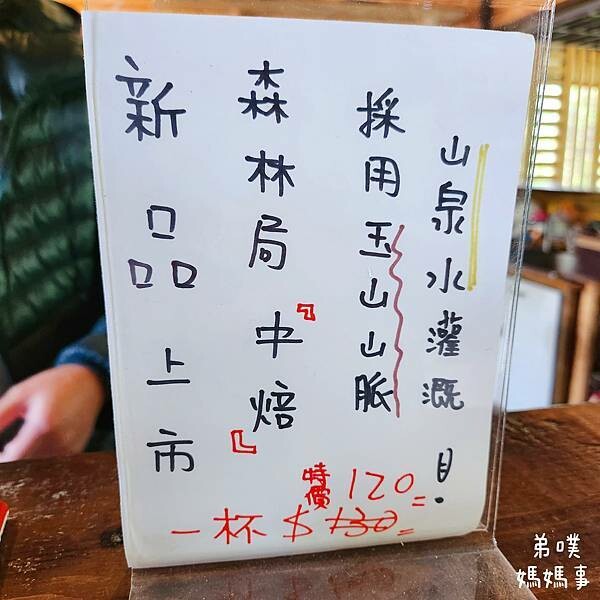 新品上市
森林局『中焙』
採用玉山山脈
山泉水灌溉！
特價 120=
一杯 $130=
弟噗
媽媽事